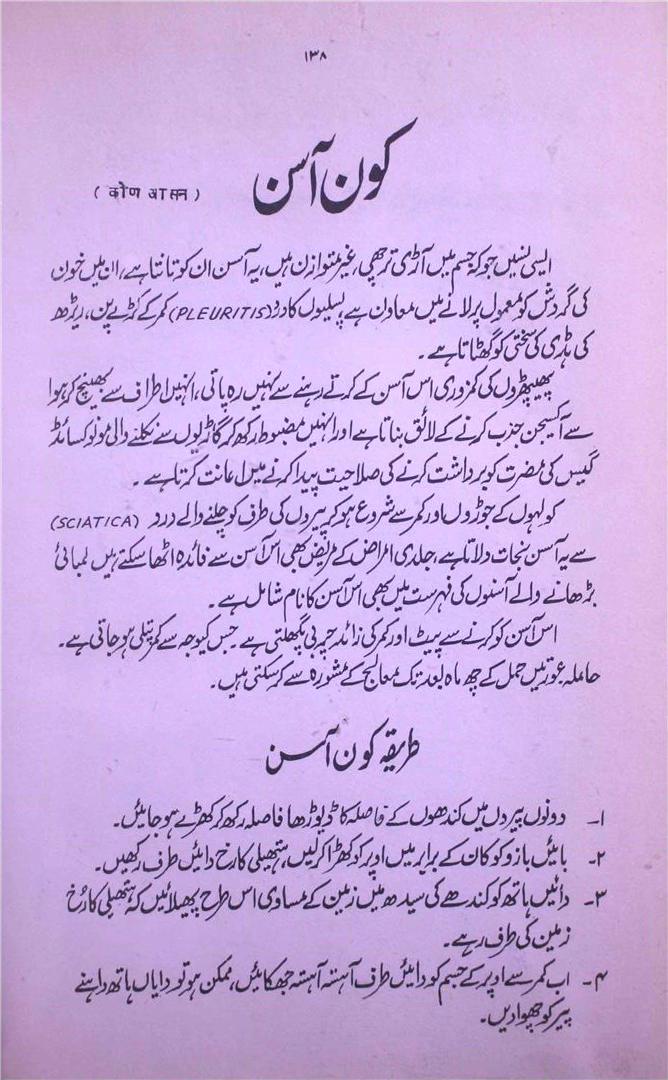 ۱۳۸
کون آسن
( कोण आसन )
ایسی نسیں جو کہ جسم میں آڑی ترچھی، غیر متوازن ہیں، یہ آسن ان کو تانتا ہے، ان میں خون
کی گردش کو معمول پر لانے میں معاون ہے، پسلیوں کا درد (PLEURITIS) کمر کے کڑے پن، ریڑھ
کی ہڈی کی سختی کو گھٹاتا ہے۔
پھیپھڑوں کی کمزوری اس آسن کے کرتے رہنے سے نہیں رہ پاتی، انہیں اطراف سے بھینچ کر ہوا
سے آکسیجن جذب کرنے کے لائق بناتا ہے اور انہیں مضبوط رکھ کر گاڑیوں سے نکلنے والی مونوکسائڈ
گیس کی مضرت کو برداشت کرنے کی صلاحیت پیدا کرنے میں اعانت کرتا ہے۔
کولہوں کے جوڑوں اور کمر سے شروع ہو کر پیروں کی طرف کو چلنے والے درد (SCIATICA)
سے یہ آسن نجات دلاتا ہے، جلدی امراض کے مریض بھی اس آسن سے فائدہ اٹھا سکتے ہیں لمبائی
بڑھانے والے آسنوں کی فہرست میں بھی اس آسن کا نام شامل ہے۔
اس آسن کو کرنے سے پیٹ اور کمر کی زائد چربی پگھلتی ہے۔ جس کیوجہ سے کمر پتلی ہو جاتی ہے۔
حاملہ عورتیں حمل کے چھ ماہ بعد تک معالج کے مشورہ سے کر سکتی ہیں۔
طریقہ کون آسن
۱۔ دونوں پیروں میں کندھوں کے فاصلہ کا ڈیوڑھا فاصلہ رکھ کر کھڑے ہو جائیں۔
۲۔ بائیں بازو کو کان کے برابر میں اوپر کو کھڑا کر لیں، ہتھیلی کا رخ دائیں طرف رکھیں۔
۳۔ دائیں ہاتھ کو کندھے کی سیدھ میں زمین کے مساوی اس طرح پھیلائیں کہ ہتھیلی کا رُخ
زمین کی طرف رہے۔
۴۔ اب کمر سے اوپر کے جسم کو دائیں طرف آہستہ آہستہ جھکائیں، ممکن ہو تو دایاں ہاتھ داہنے
پیر کو چھوا دیں۔